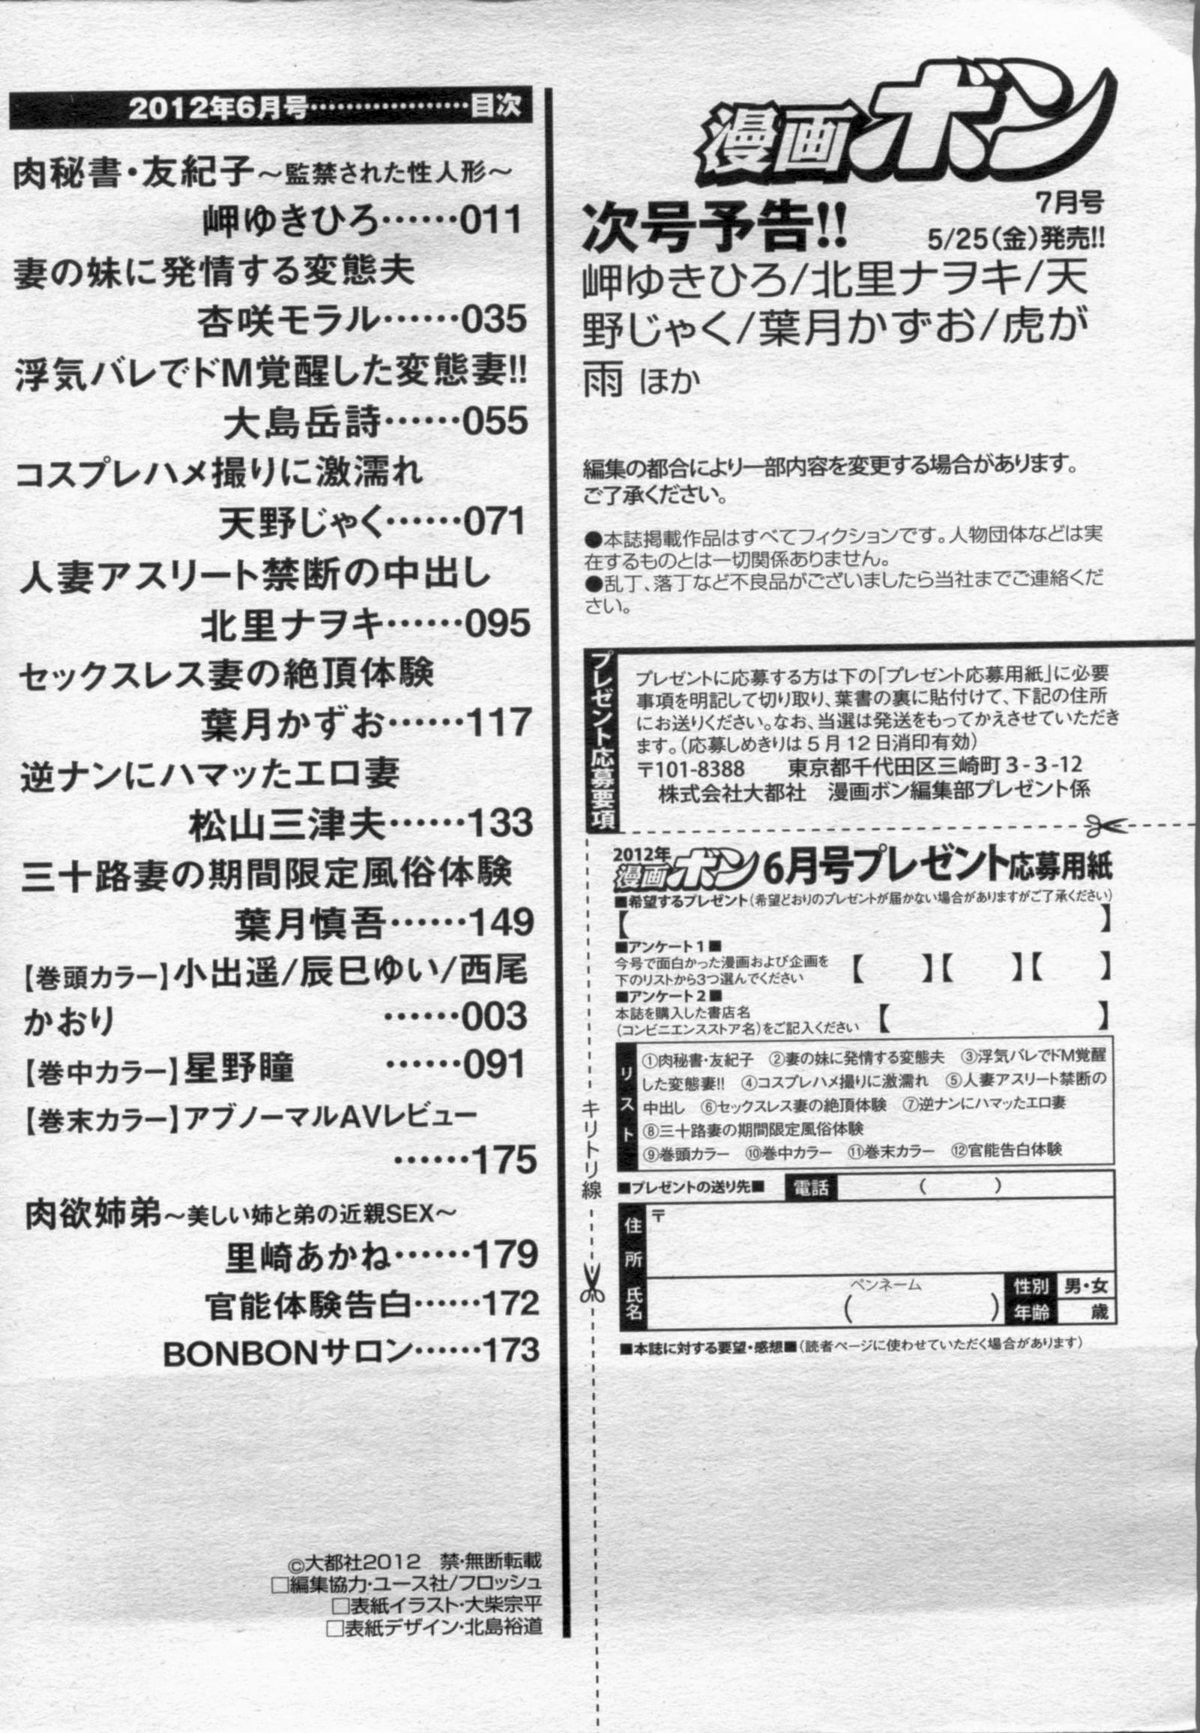 2012年6月号………………目次
肉秘書・友紀子～監禁された性人形～
岬ゆきひろ……011
妻の妹に発情する変態夫
杏咲モラル……035
浮気バレでドM覚醒した変態妻!!
大島岳詩……055
コスプレハメ撮りに激濡れ
天野じゃく……071
人妻アスリート禁断の中出し
北里ナヲキ……095
セックスレス妻の絶頂体験
葉月かずお……117
逆ナンにハマッたエロ妻
松山三津夫……133
三十路妻の期間限定風俗体験
葉月慎吾……149
【巻頭カラー】小出遥/辰巳ゆい/西尾
かおり ……003
【巻中カラー】星野瞳 ……091
【巻末カラー】アブノーマルAVレビュー
……175
肉欲姉弟～美しい姉と弟の近親SEX～
里崎あかね……179
官能体験告白……172
BONBONサロン……173
©大都社2012 禁・無断転載
□編集協力・ユース社/フロッシュ
□表紙イラスト・大柴宗平
□表紙デザイン・北島裕道
漫画ボン
次号予告!!
7月号
5/25(金)発売!!
岬ゆきひろ/北里ナヲキ/天
野じゃく/葉月かずお/虎が
雨 ほか
編集の都合により一部内容を変更する場合があります。
ご了承ください。
●本誌掲載作品はすべてフィクションです。人物団体などは実
在するものとは一切関係ありません。
●乱丁、落丁など不良品がございましたら当社までご連絡くだ
さい。
プレゼント応募要項
プレゼントに応募する方は下の「プレゼント応募用紙」に必要
事項を明記して切り取り、葉書の裏に貼付けて、下記の住所
にお送りください。なお、当選は発送をもってかえさせていただき
ます。(応募しめきりは5月12日消印有効)
〒101-8388 東京都千代田区三崎町3-3-12
株式会社大都社 漫画ボン編集部プレゼント係
キリトリ線
2012年
漫画ボン6月号プレゼント応募用紙
■希望するプレゼント(希望どおりのプレゼントが届かない場合がありますがご了承ください)
【 】
■アンケート1■
今号で面白かった漫画および企画を
下のリストから3つ選んでください
【 】【 】【 】
■アンケート2■
本誌を購入した書店名
(コンビニエンスストア名)をご記入ください
【 】
リスト
①肉秘書・友紀子 ②妻の妹に発情する変態夫 ③浮気バレでドM覚醒
した変態妻!! ④コスプレハメ撮りに激濡れ ⑤人妻アスリート禁断の
中出し ⑥セックスレス妻の絶頂体験 ⑦逆ナンにハマッたエロ妻
⑧三十路妻の期間限定風俗体験
⑨巻頭カラー ⑩巻中カラー ⑪巻末カラー ⑫官能告白体験
■プレゼントの送り先■ 電話 ( )
住所
〒
氏名
ペンネーム
( )
性別 男・女
年齢 歳
■本誌に対する要望・感想■(読者ページに使わせていただく場合があります)